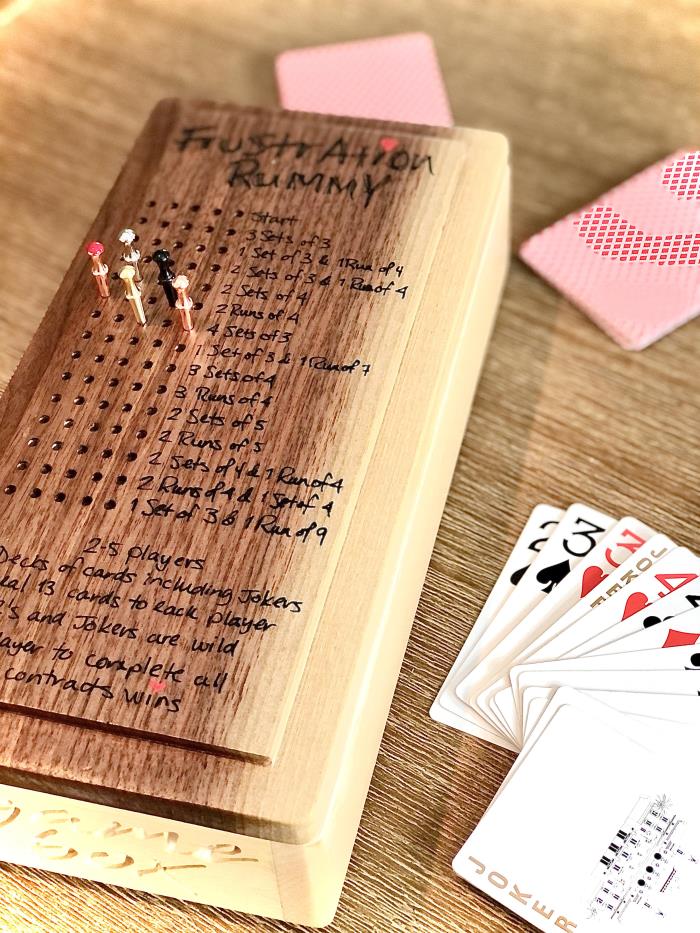 Frustration
Rummy
Start
3 Sets of 3
1 Set of 3 & 1 Run of 4
2 Sets of 3 & 1 Run of 4
2 Sets of 4
2 Runs of 4
4 Sets of 3
1 Set of 3 & 1 Run of 7
3 Sets of 4
3 Runs of 4
2 Sets of 5
2 Runs of 5
2 Sets of 4 & 1 Run of 4
2 Runs of 4 & 1 Set of 4
1 Set of 3 & 1 Run of 9
2-5 players
Decks of cards including Jokers
13 cards to each player
2's and Jokers are wild
to complete all
contracts wins
Game
Box
2
3
3
JOKER
4
JOKER